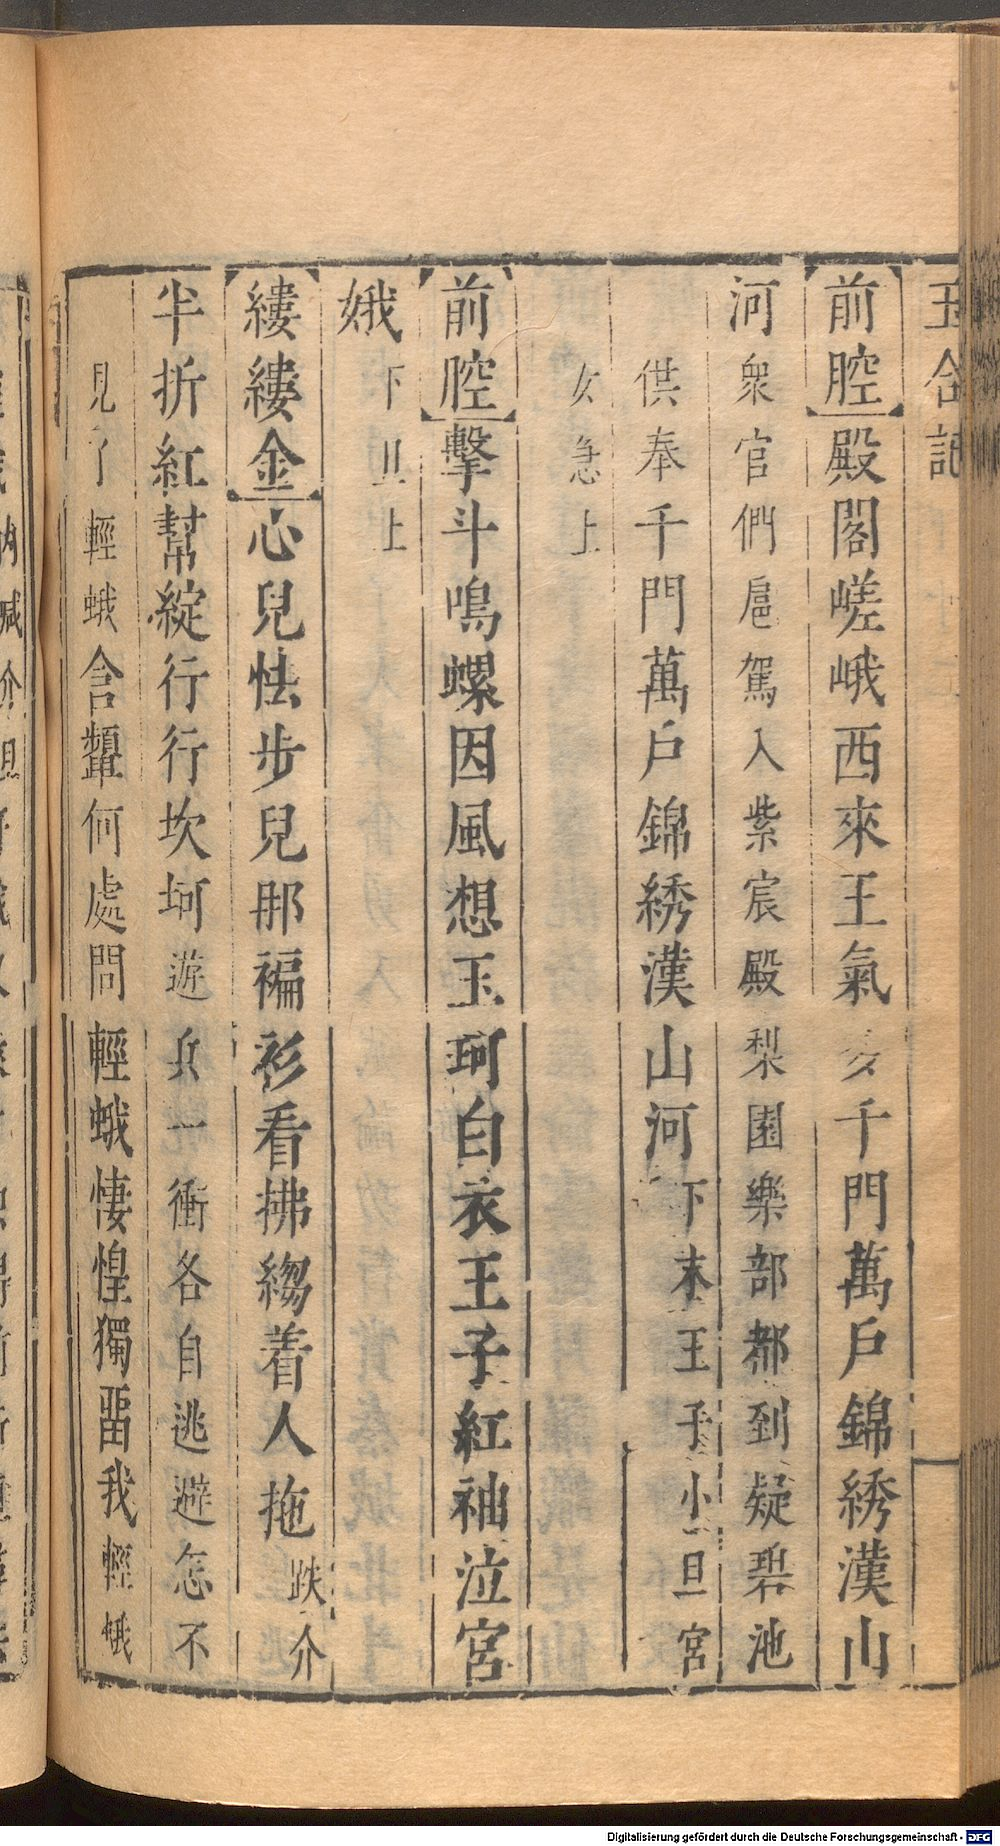 玉合記
前腔 殿閣嵯峨西來王氣多千門萬戶錦綉漢山
河 衆官們扈駕入紫宸殿梨園樂部都到疑碧池
供奉千門萬戶錦綉漢山河 下末王子小旦宮
女急上
前腔 擊斗鳴螺因風想玉珂白衣王子紅袖泣宮
娥 下旦上
縷縷金 心兒怯步兒那褊衫看拂縐着人拖 跌介
半折紅幫綻行行坎坷 遊兵一衝各自逃避怎不
見了輕蛾 含顰何處問輕蛾悽惶獨畱我 輕蛾
Digitalisierung gefördert durch die Deutsche Forschungsgemeinschaft - DFG